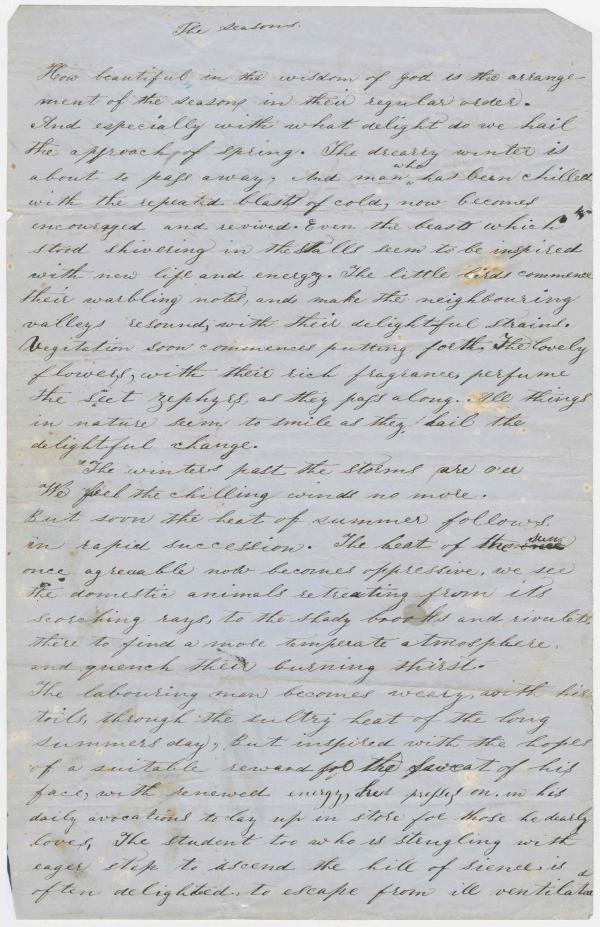 The seasons.
How beautiful in the wisdom of god is the arrange-
ment of the seasons in their regular order.
And especially with what delight do we hail
the approach of spring. The drearry winter is
about to pass away, And man who has been chilled
with the repeated blasts of cold, now becomes
encouraged and revived. Even the beasts which
stood shivering in the stalls seem to be inspired
with new life and energy. The little birds commence
their warbling notes, and make the neighbouring
valleys resound, with their delightful strains.
Vegitation soon commences putting forth, The lovely
flowers, with their rich fragrance, perfume
the zephyrs, as they pass along. All things
in nature seem to smile as they hail the
delightful change.
"The winters past the storms are oer
We feel the chilling winds no more.
But soon the heat of summer follows
in rapid succession. The heat of the sun
once agreeable now becomes oppressive, we see
the domestic animals retreating from its
scorching rays, to the shady brooks and rivulets,
there to find a more temperate atmosphere,
and quench their burning thirst.
The labouring man becomes weary, with his
toils, through the sultry heat of the long
summers day, But inspired with the hopes
of a suitable reward for the sweat of his
face, with renewed energy, presses on in his
daily avocations to lay up in store for those he dearly
loves, The student too who is strugling with
eager step to ascend the hill of sience is
often delighted to escape from ill ventilated